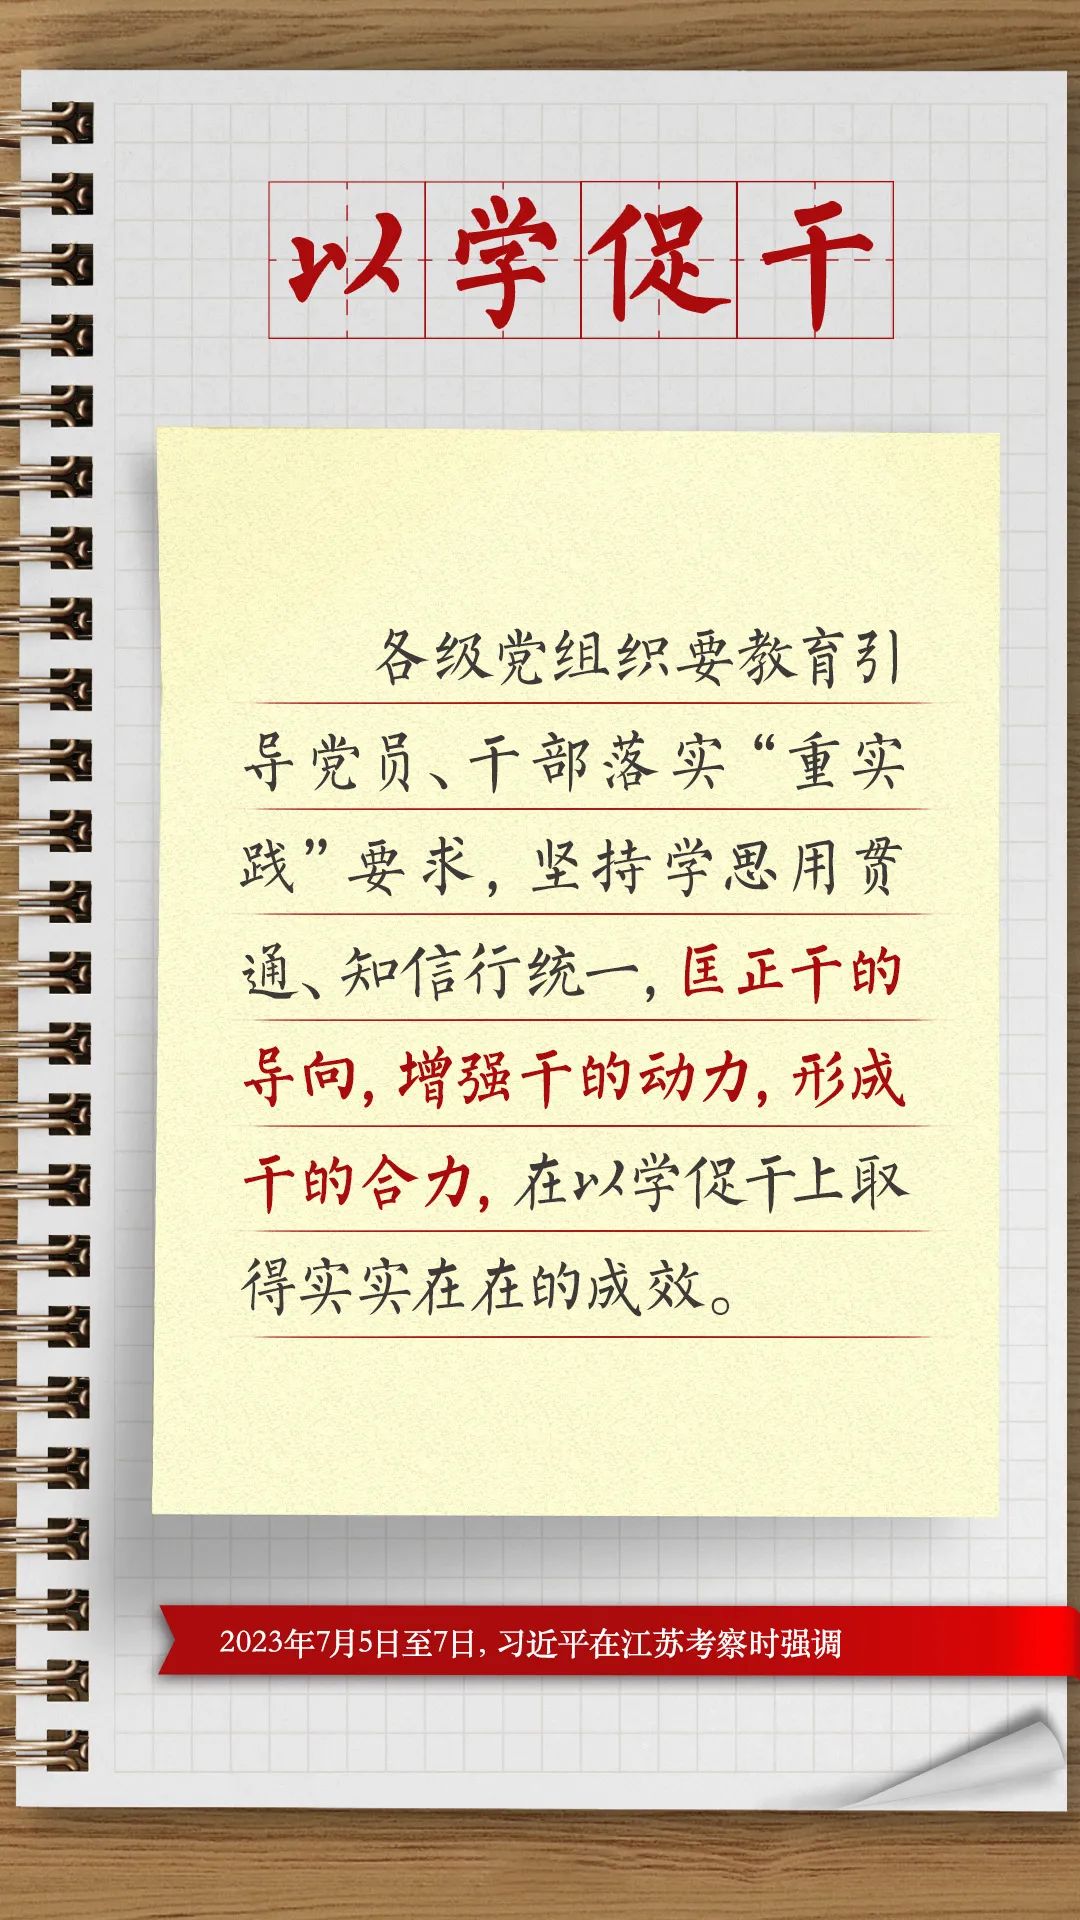 以学促干
各级党组织要教育引
导党员、干部落实“重实
践”要求，坚持学思用贯
通、知信行统一，匡正干的
导向，增强干的动力，形成
干的合力，在以学促干上取
得实实在在的成效。
2023年7月5日至7日，习近平在江苏考察时强调